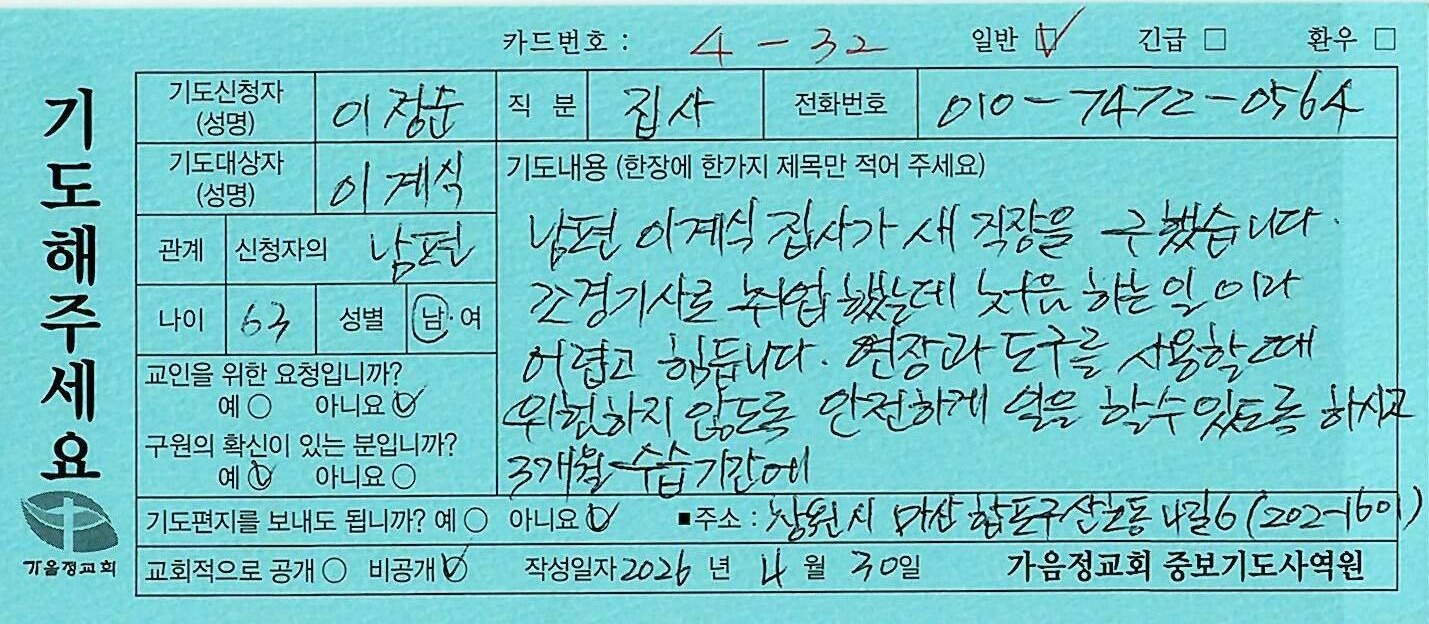 카드번호 : 4 - 32 일반 ☑ 긴급 □ 환우 □
기도해주세요
기도신청자 (성명) 이정순 직 분 집사 전화번호 010-7472-0564
기도대상자 (성명) 이계식
관계 신청자의 남편
나이 63 성별 남·여
교인을 위한 요청입니까?
예○ 아니요☑
구원의 확신이 있는 분입니까?
예☑ 아니요○
기도내용 (한장에 한가지 제목만 적어 주세요)
남편 이계식 집사가 새 직장을 구했습니다.
조경기사로 취업했는데 처음 하는 일이라
어렵고 힘듭니다. 연장과 도구를 사용할때
위험하지 않도록 안전하게 일을 할수있도록 하시고
3개월 수습기간에
기도편지를 보내도 됩니까? 예○ 아니요☑ ■주소 : 창원시 마산합포구 산호동 4길6 (202-1601)
교회적으로 공개○ 비공개☑ 작성일자 2026 년 4 월 30일 가음정교회 중보기도사역원
가음정교회